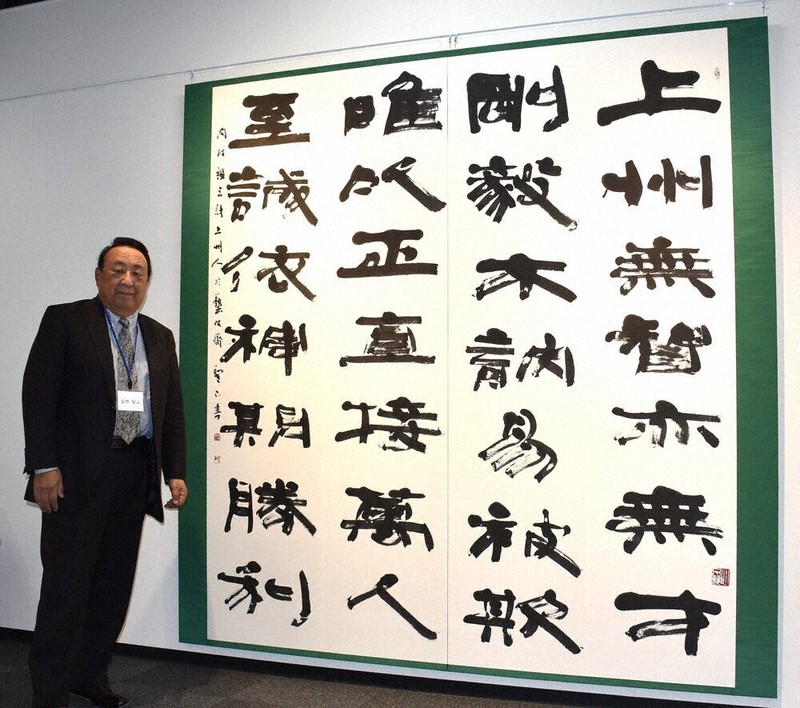 上州無智亦無才
剛毅木訥易被欺
唯以正直接萬人
至誠依神期勝利
内村鑑三詩上州人